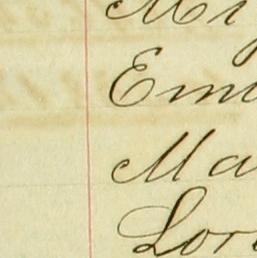 Mi
Emi
Ma
Lor